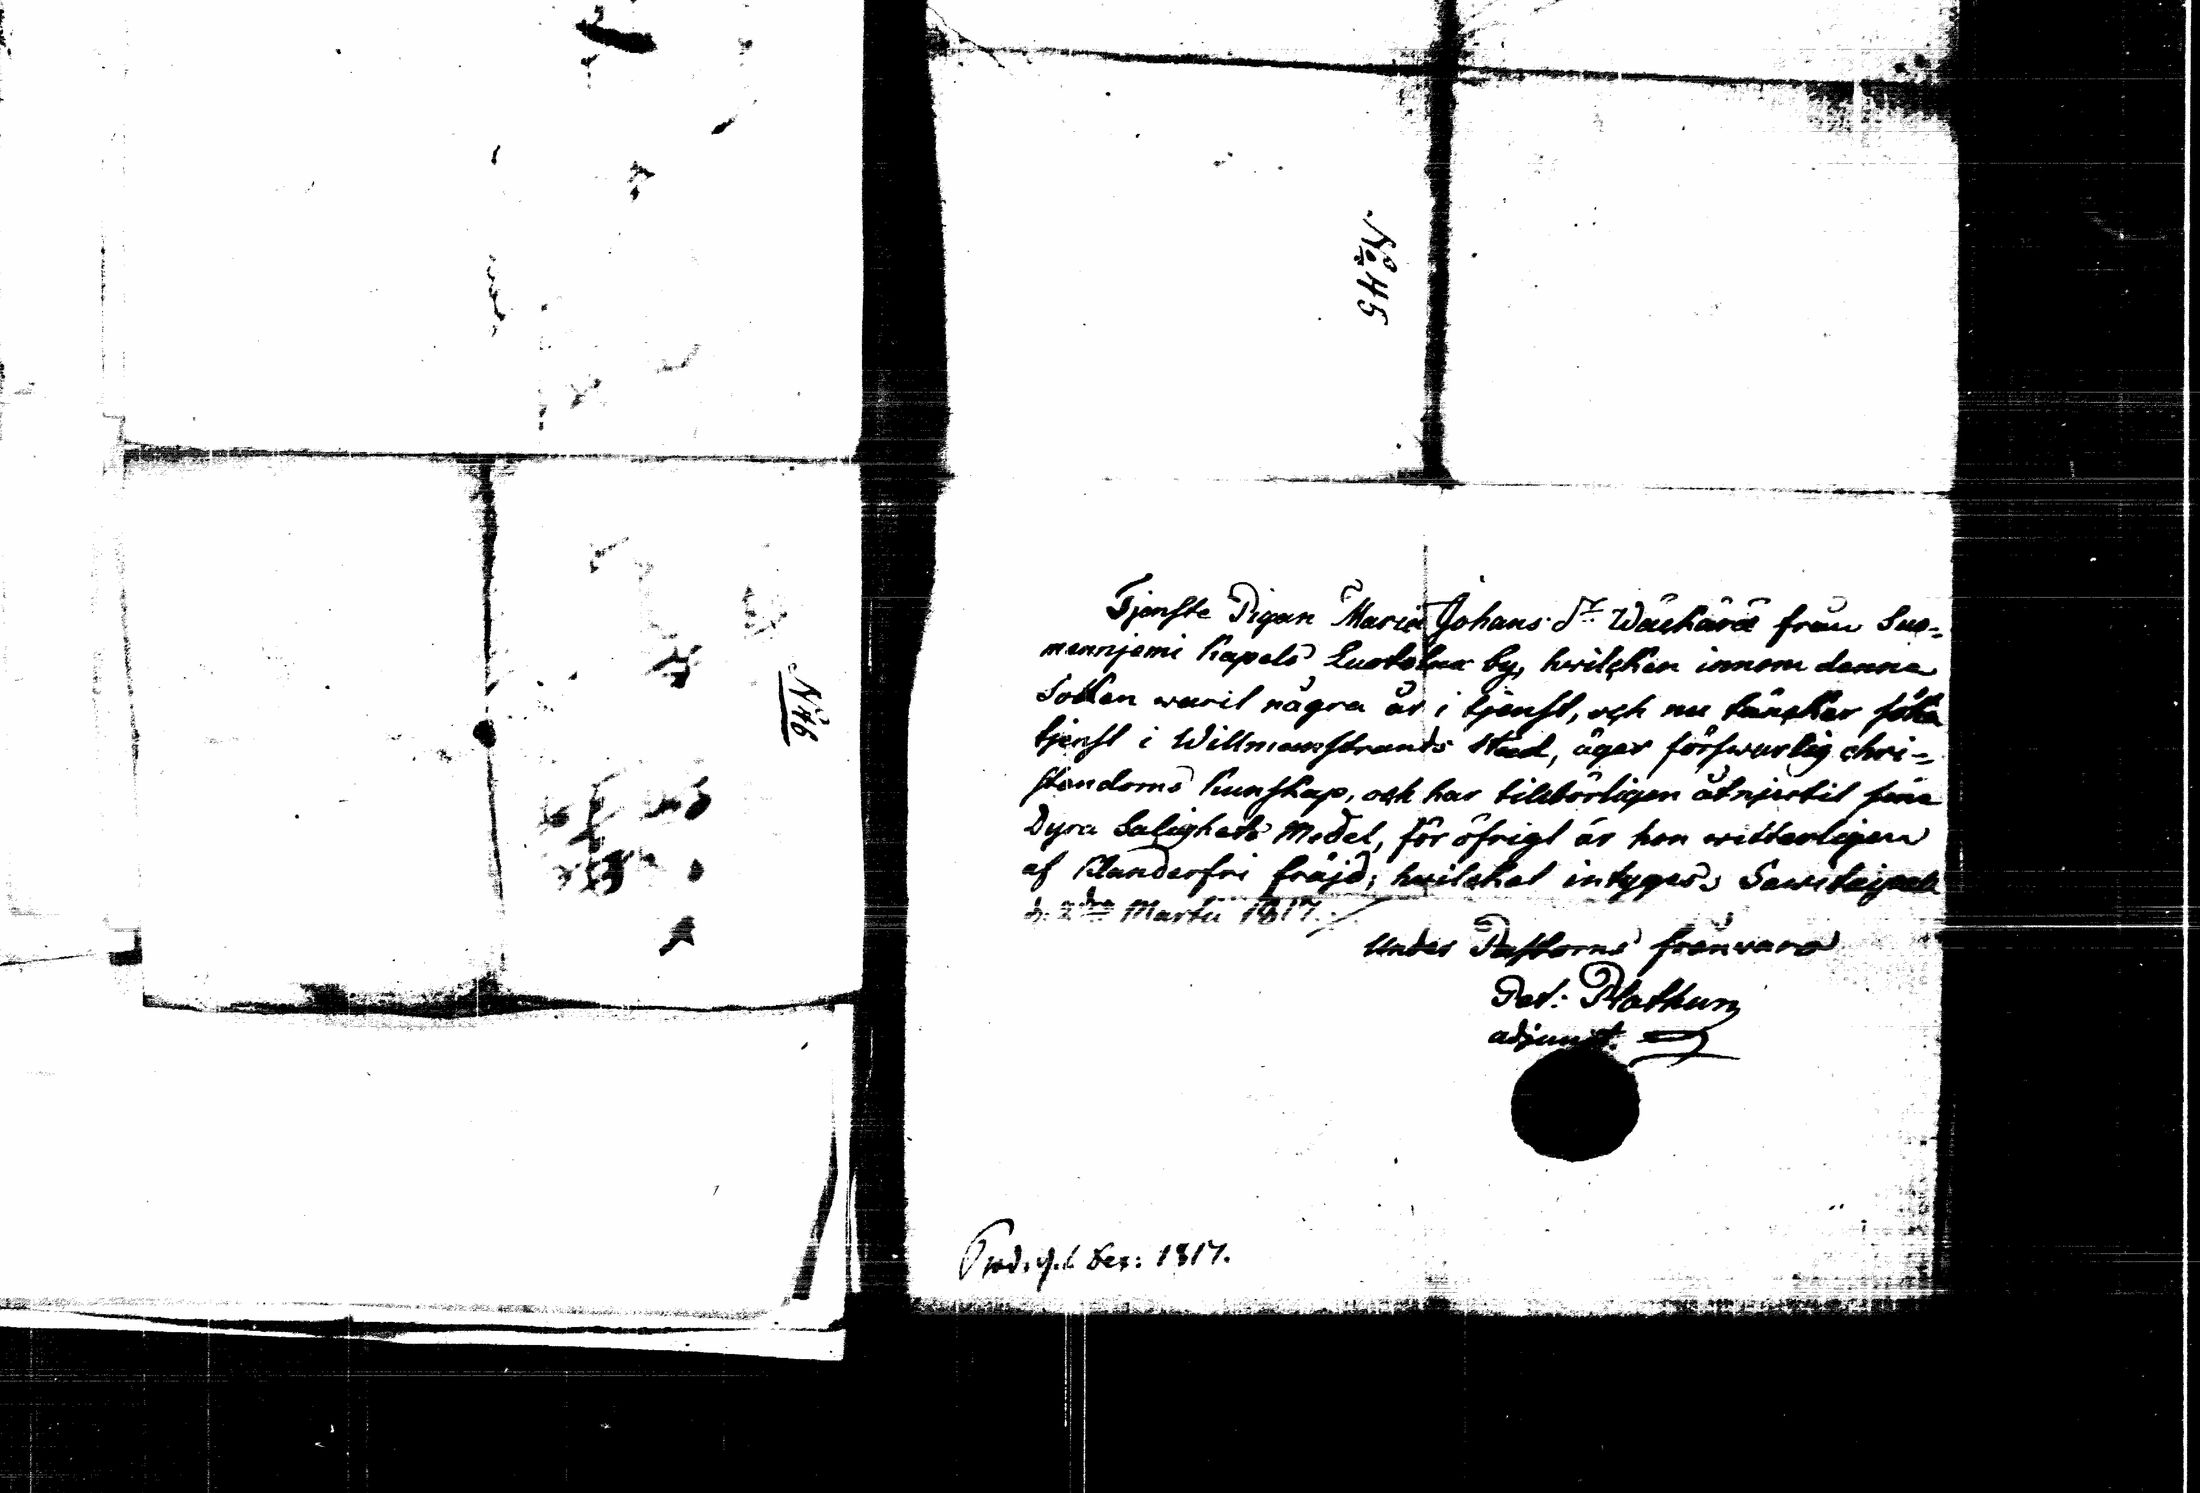 No 45
No 46
Tjenste Pigan Maria Johans Dr Wäehärä från Suo-
menniemi Kapels Luotolax by, hvilcken innom denna
Socken warit några år i tjenst, och nu täncker söka
tjenst i Willmanstrands Stad, äger förswarlig chri-
stendoms kunskap, och har tilbörligen åtnjutit sina
Dyra Salighets Medel, för öfrigt är hon witterligen
af Klanderfri fräjd; hvilcket intygas, Sawitaipale
d. 2dra Martii 1817.
Under Pastorns frånvaro
Pet: Plathun
adjunct.
1817.